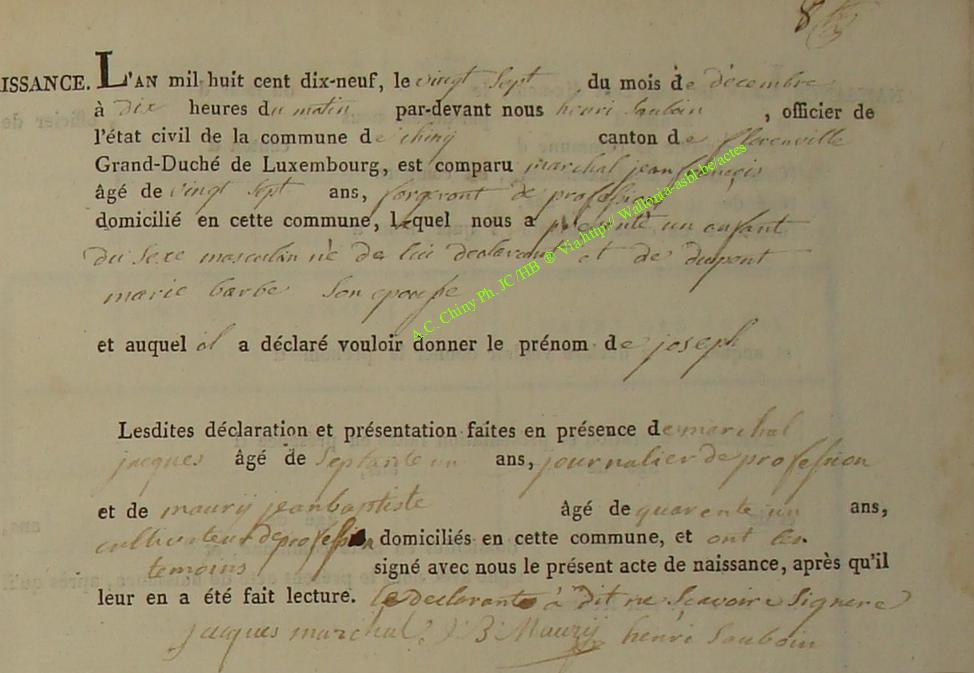 8
ISSANCE. L'AN mil huit cent dix-neuf, le vingt sept du mois de décembre
à dix heures du matin par-devant nous henri Sauboin , officier de
l'état civil de la commune de chiny canton de florenville
Grand-Duché de Luxembourg, est comparu marchal jean françois
âgé de vingt sept ans, forgeront de profession
domicilié en cette commune, Lequel nous a présenté un enfant
du sexe masculin né de lui declarant et de dupont
marie barbe son epouse
et auquel il a déclaré vouloir donner le prénom de joseph
Lesdites déclaration et présentation faites en présence de marchal
jacques âgé de septante un ans, journalier de profession
et de maury jean baptiste âgé de quarente un ans,
cultivateur de profession domiciliés en cette commune, et ont les
temoins signé avec nous le présent acte de naissance, après qu'il
leur en a été fait lecture. le declarant à dit ne scavoire signere
jacques marchal J B Maury henri Sauboin
A.C. Chiny Ph. JC/HB ® Via.http// Wallonia-asbl-be/actes